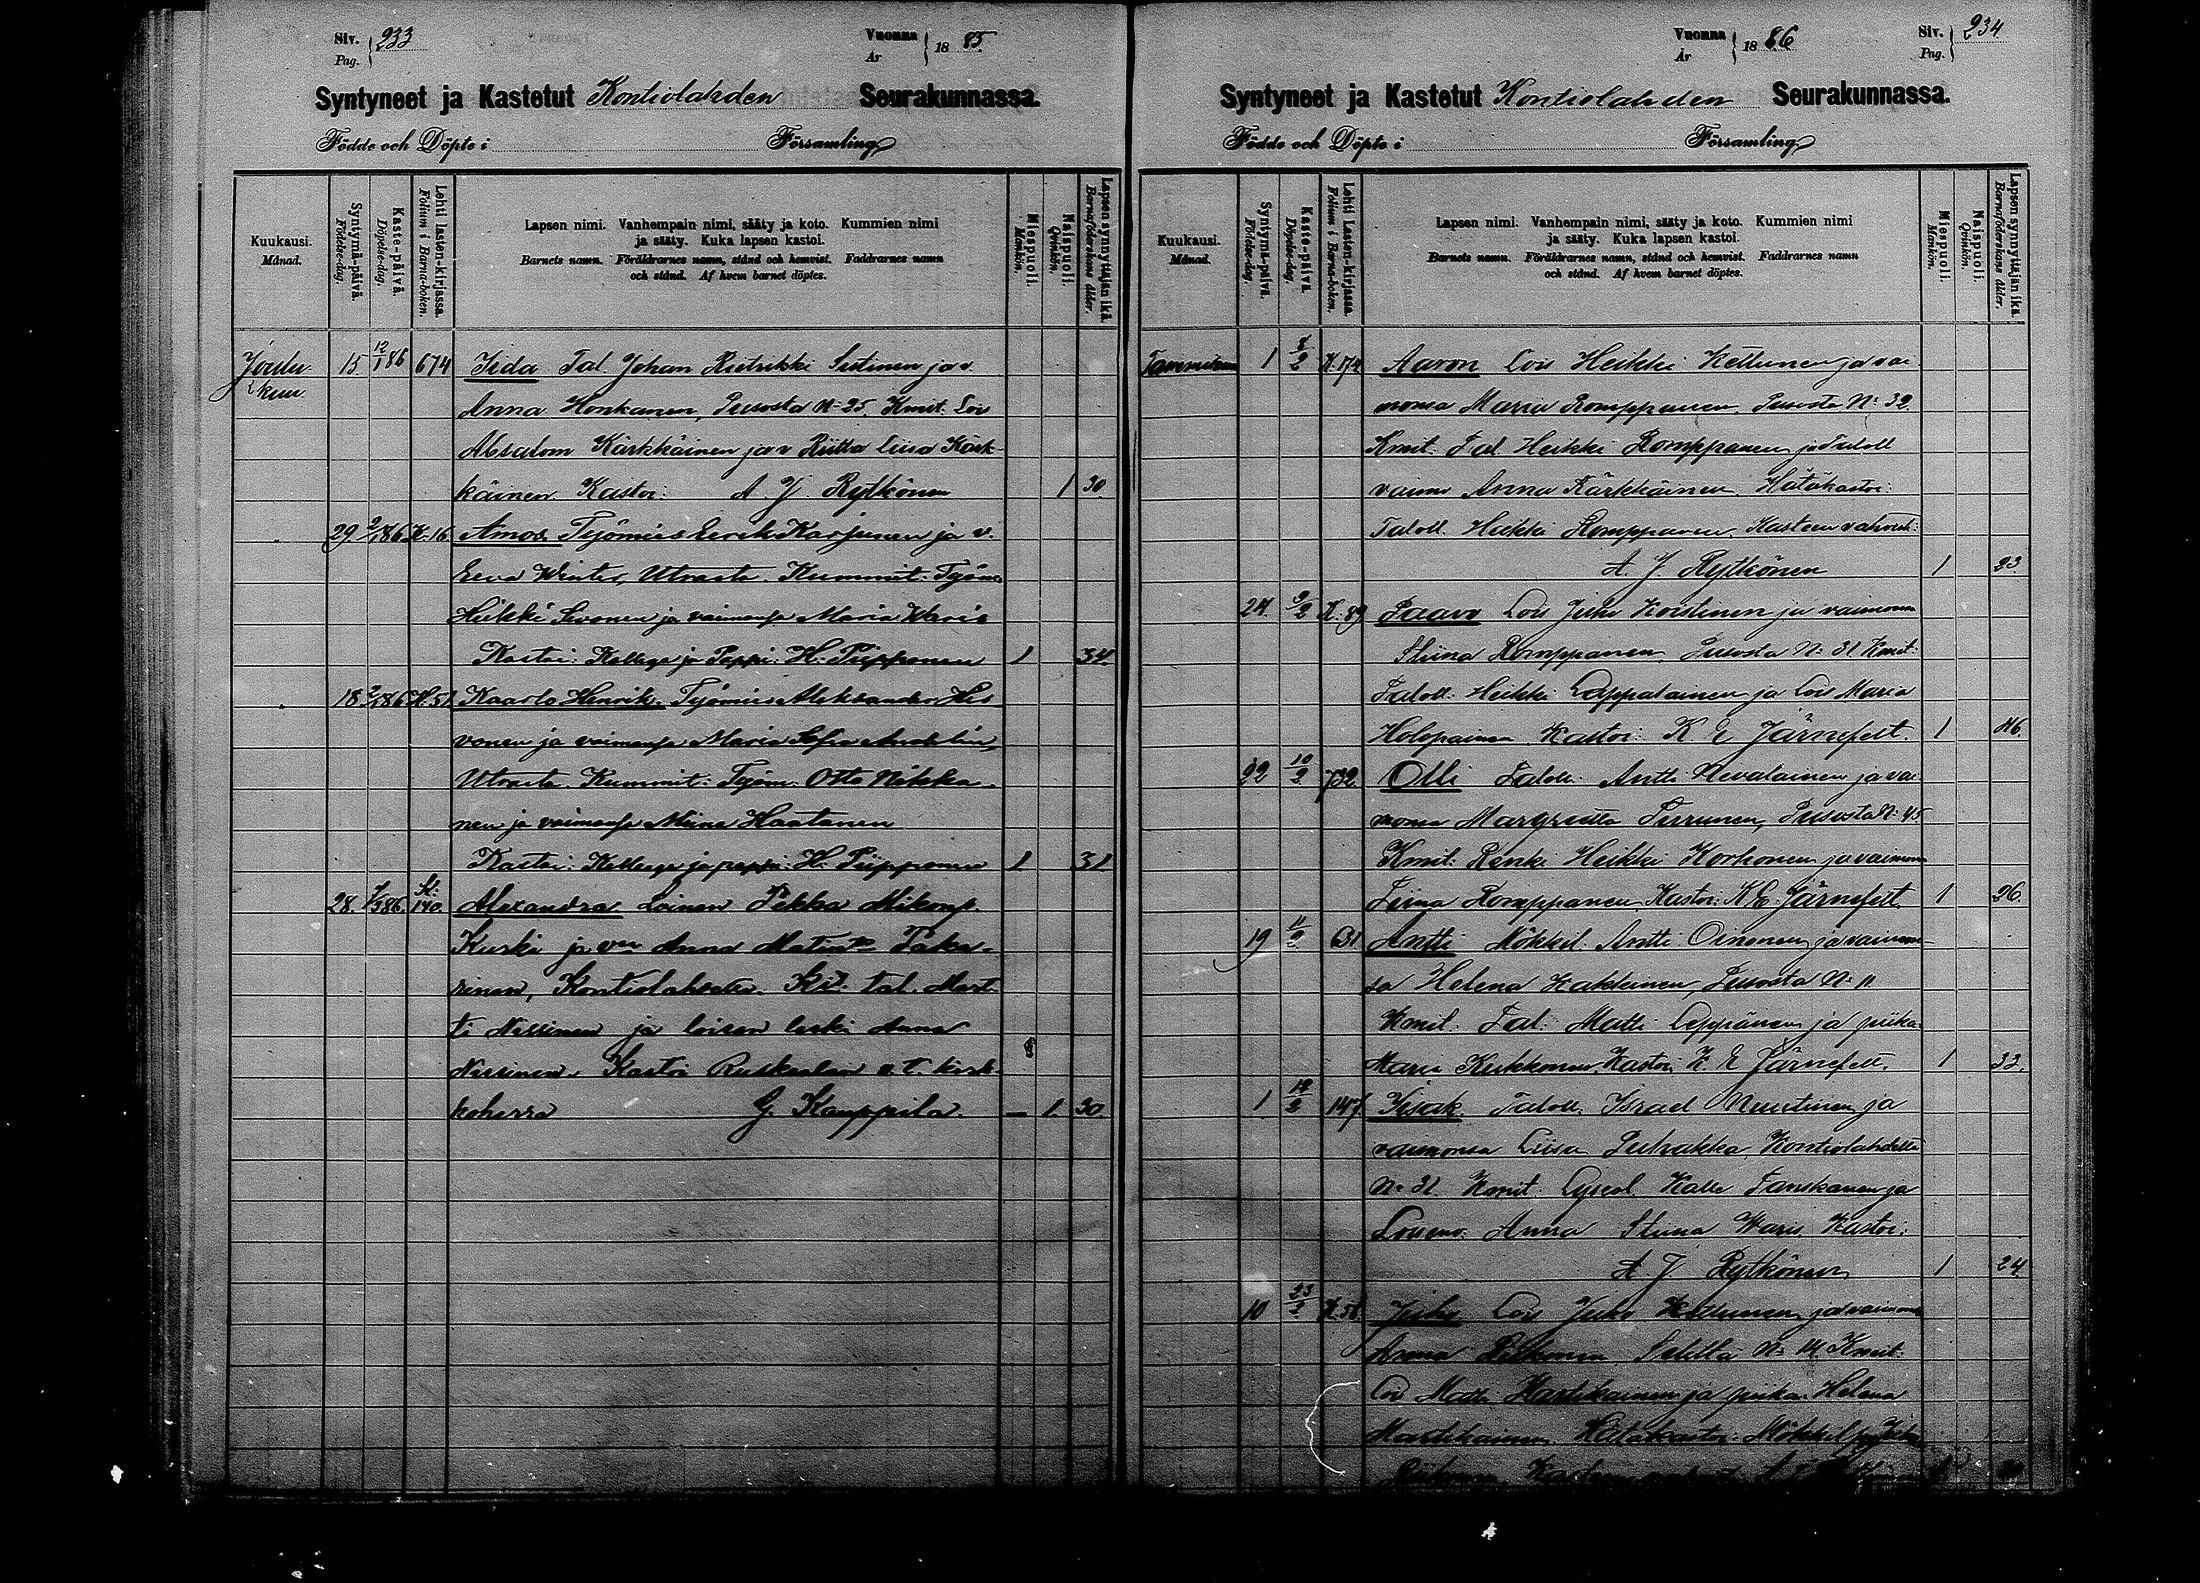 Siv. 233
Pag.
Vuonna 1885.
År
Syntyneet ja Kastetut Kontiolahden Seurakunnassa.
Födde och Döpte i Församling
Kuukausi.
Månad.
Syntymä-päivä.
Födelse-dag.
Kaste-päivä.
Döpelse-dag.
Lehti lasten-kirjassa.
Folium i Barna-boken.
Lapsen nimi. Vanhempain nimi, sääty ja koto. Kummien nimi
ja sääty. Kuka lapsen kastoi.
Barnets namn. Föräldrarnes namn, stånd och hemvist. Faddrarnes namn
och stånd. Af hvem barnet döptes.
Miespuoli.
Mankön.
Naispuoli.
Qvinkön.
Lapsen synnyttäjän ikä.
Barnaföderskans ålder.
Joulu 15 12/1 86 674 Iida Tal. Johan Rietrikki Sistinen ja v
kuu. Anna Honkanen, Puso​sta N: 25. Kmit. Lois
Absalom Kärkkäinen ja v Riitta Liisa Kärk-
käinen Kastoi: A. J. Rytkönen 1 30
29 2/1 86 K. 16. Amos. Työmies Eerik Karjunen ja v.
Eeva Winter, Utrasta. Kummit: Työm.
Heikki Sivonen ja vaimonsa Maria Waris
Kastoi: Kollega ja Pappi: H. Piipponen 1 34.
18 2/1 86 K. 51. Kaarlo Henrik. Työmies Aleksander Hir
vonen ja vaimonsa Maria Sofia
Utrasta. Kummit: Työm. Otto Nikka-
nen ja vaimonsa Miina Haatanen
Kastoi: Kollega ja pappi: H. Piipponen 1 31.
28. 1/3 86. 140. Alexandra Loinen Pekka Mikonp.
Kuski ja vmo Anna Matint. Taka-
rinen, Kontiolahdelta. Kt. tal. Mart-
ti Nissinen ja loisen leski Anna
Nissinen. Kastoi Ruskealan v. t. kirk-
koherra G. Kauppila. — 1. 30.
Vuonna 1886.
År
Siv. 234
Pag.
Syntyneet ja Kastetut Kontiolahden Seurakunnassa.
Födde och Döpte i Församling
Kuukausi.
Månad.
Syntymä-päivä.
Födelse-dag.
Kaste-päivä.
Döpelse-dag.
Lehti Lasten-kirjassa.
Folium i Barna-boken.
Lapsen nimi. Vanhempain nimi, sääty ja koto. Kummien nimi
ja sääty. Kuka lapsen kastoi.
Barnets namn. Föräldrarnes namn, stånd och hemvist. Faddrarnes namn
och stånd. Af hvem barnet döptes.
Miespuoli.
Mankön.
Naispuoli.
Qvinkön.
Lapsen synnyttäjän ikä.
Barnaföderskans ålder.
Tammikuu 1 K. 174 Aaron Lois Heikki Kettunen ja vai
monsa Maria Romppanen, Pusosta N: 32.
Kmit: Tal Heikki Romppanen ja Taloll
vaimo Anna Kärkkäinen. Hätäkastoi:
Taloll. Heikki Romppanen. Kasteen vahvisti:
A. J. Rytkönen 1 23
24. 9/2 K. 89 Paavo Lois Juho Koistinen ja vaimonsa
Stiina Romppanen, Pusosta N: 31 Kmit:
Taloll: Heikki Lappalainen ja Lois Maria
Holopainen. Kastoi: K E Järnefelt. 1 46.
22 10/2 732. Olli Taloll: Antti Nevalainen ja vai
monsa Margreetta Turunen, Pusosta N: 45
Kmit: Renki Heikki Korhonen ja vaimonsa
Tiina Romppanen. Kastoi: K E Järnefelt. 1 26.
19 11/2 631 Antti Mökkil. Antti Oinonen ja vaimon-
sa Helena Kakkinen, Pusosta N: 11
Kmit: Tal: Matti Leppänen ja piika
Maria Kukkonen. Kastoi: K. E Järnefelt. 1 33.
1 19/2 147. Iisak Taloll. Israel Nuutinen ja
vaimonsa Liisa Puhakka, Kontiolahdelta
N: 31. Kmit: Kalle Tanskanen ja
Anna Stiina Waris. Kastoi:
A. J. Rytkönen 1 24.
10 23/2 K. 58. Juho Lois Juho Kettunen ja vaimonsa
Anna Selittä N: 14. Kmit:
Lois Matti Martikainen ja piika Helena
Martikainen. Hätäkastoi: Mökkil